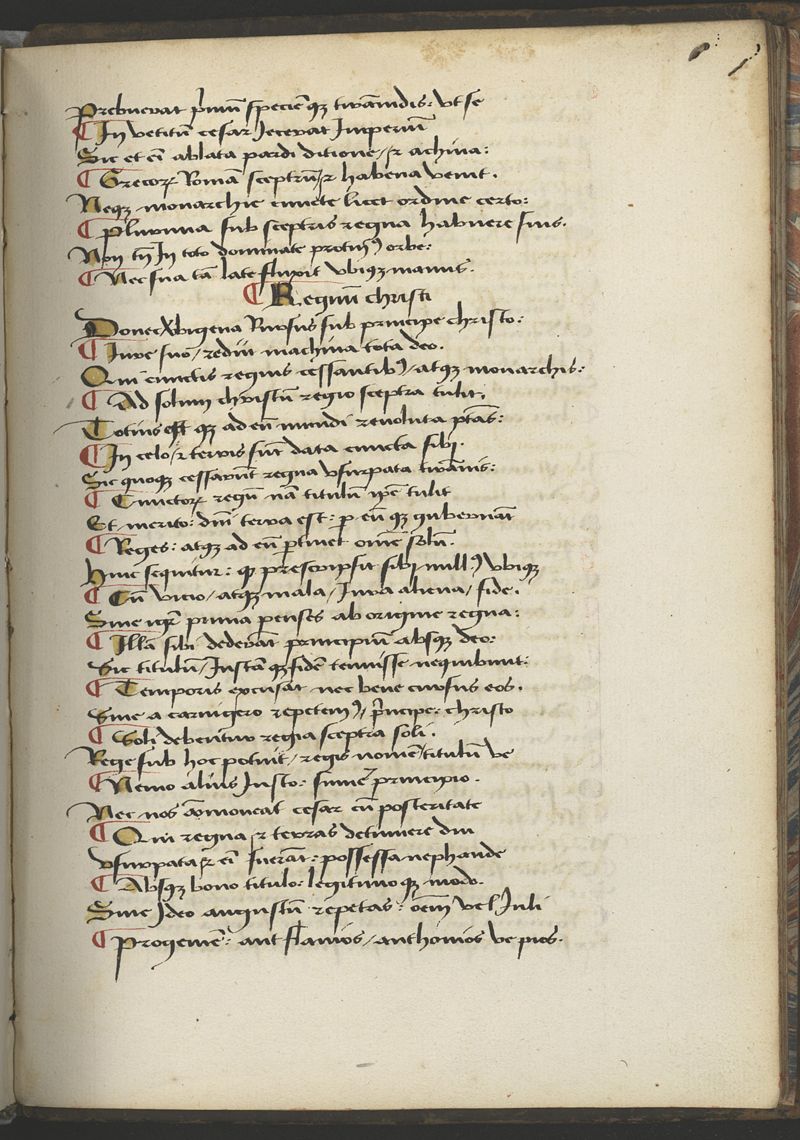 Prebuerat pͥmū specieͫ qꝫ tirāmidis: vt se
¶ In vetitū cesar Jecerat Imperiū
Sic et eī ablata pardi ditione / ꝛ achiua:
¶ Grecoꝝ Romā sceptrū / ꝛ habena venit.
Neqꝫ monarchie cuncte licet ordine certo:
¶ plurima sub sceptris regna habuere suis.
Non tn̄ In toto dominate protinꝰ orbe:
¶ Nec sua tā late fluxit vbiqꝫ manus.
¶ Regnū christi
Donec Rursus sub principe christo:
¶ Iure suo / redijt machina tota deo.
Qui cunctis regnis cessantibꝰ / atqꝫ monarchis:
¶ Ad solum christū regio sceptra tulit.
Totius est qꝫ ad eū mundi reuoluta ptās:
¶ In celo / ꝛ terris sūt data cuncta sibj.
Sic quoqꝫ cessarūt regna vsurpata tirānis:
¶ Cunctoꝝ regū nā titulū ipē tulit
Et merito: dnī terra est: p eū qꝫ gubernāt
¶ Reges: atqꝫ ad eū ptinet omē solū.
Hinc sequitur: ꝙ prescripsit sibj nullꝰ vbiqꝫ
¶ Cū vicio / atqꝫ mala / Iura aliena / fide.
Sine igͥ prima penses ab origine regna:
¶ Illā sibi dederāt principiū absqꝫ deo:
Sic titulū / Iustā qꝫ fidē tenuisse nequibunt:
¶ Temporis excusat nec bene cursus eos.
Sine a carnigero repetemꝰ / pͥncipe: christo
¶ Solj debentur regia sceptra soli.
Rege sub hoc potuit / regis nomē / titulū ve
¶ Nemo alius Justo: sumeͬ principio.
Nec nos cōmoueat cesar cū posteritate
¶ Qui regna / ꝛ terras detinuere diu
vsurpata / ꝛ eī fuerāt: possessa nephande
¶ Absqꝫ bono titulo: legitimo qꝫ modo.
Sine Ideo augustū repetas: oēm vel Juli
¶ Progeniē: aut flamios / anthonios ve pios.